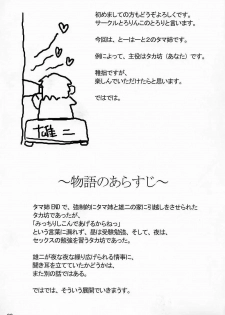 初めましての方もどうぞよろしく。
サークルとろりんこのとろりと言います。
今回は、とぅーはーと２のタマ姉
例によって、主役はタカ坊（あなた）です。
稚拙ですが、
楽しんでいただけたらと思います。
ではでは。
雄二
～物語のあらすじ～
タマ姉ENDで、強制的にタマ姉と雄二の家に引越しをさせられた
タカ坊であったが、
「みっちりしこんであげるからねっ」
という言葉に漏れず、昼は受験勉強、そして、夜は、
セックスの勉強を習うタカ坊であった。
雄二が夜な夜な繰り広げられる情事に、
聞き耳を立てていたかどうかは、
また別の話ではある。
ではでは、そういう展開でいきまうす。